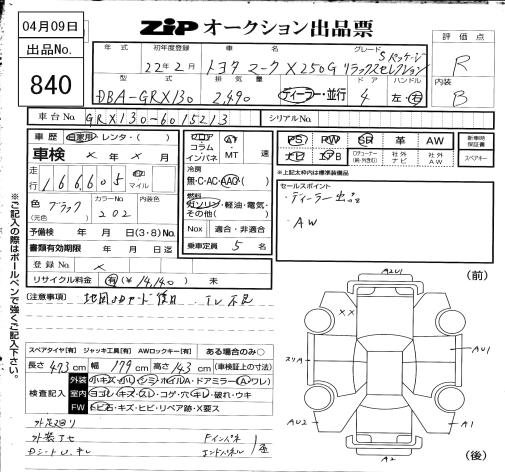 04月09日
出品No.
840
ZIP オークション出品票
評価点
R
内装
B
年式 初年度登録 車名 グレード
22年2月 トヨタ マークX 250G Sパッケージ リラックスセレクション
型式 排気量 ドア ハンドル
DBA-GRX130 2,490 ディーラー・並行 4 左・右
車台No. GRX130-6015213 シリアルNo.
車歴 自家用・レンタ・( )
車検 × 年 × 月
走行 166,605 km マイル
色 ブラック (元色) カラーNo. 202 内装色
予備検 年 月 日(3・8)No.
書類有効期限 年 月 日迄
登録No. ×
リサイクル料金 有(¥14,140) 未
フロア コラム インパネ AT・MT 速
冷房 無・C・AC・AAC
燃料 ガソリン・軽油・電気・その他( )
Nox 適合・非適合
乗車定員 5 名
PS PW SR 革 AW
ナビ エアB 社外ナビ 社外AW
新車時保証書
スペアキー
※上記太枠内は標準装備品
セールスポイント
・ディーラー出品
・AW
【注意事項】
スペアタイヤ【有】 ジャッキ工具【有】 AWロックキー【有】 ある場合のみ○
長さ 473 cm 幅 179 cm 高さ 143 cm (車検証上の寸法)
検査記入
外装 小キズ・小ハ・シミ・ホイルA・ドアミラー(A・ワレ)
室内 ヨゴレ・キズ・スレ・コゲ・穴・キレ・破れ・ウキ
FW トビ石・キズ・ヒビ・リペア跡・X要ス
※ご記入の際はボールペンで強くご記入下さい。
(前)
A2U1
××
スリA
AU1
AU2
A1
A2
(後)